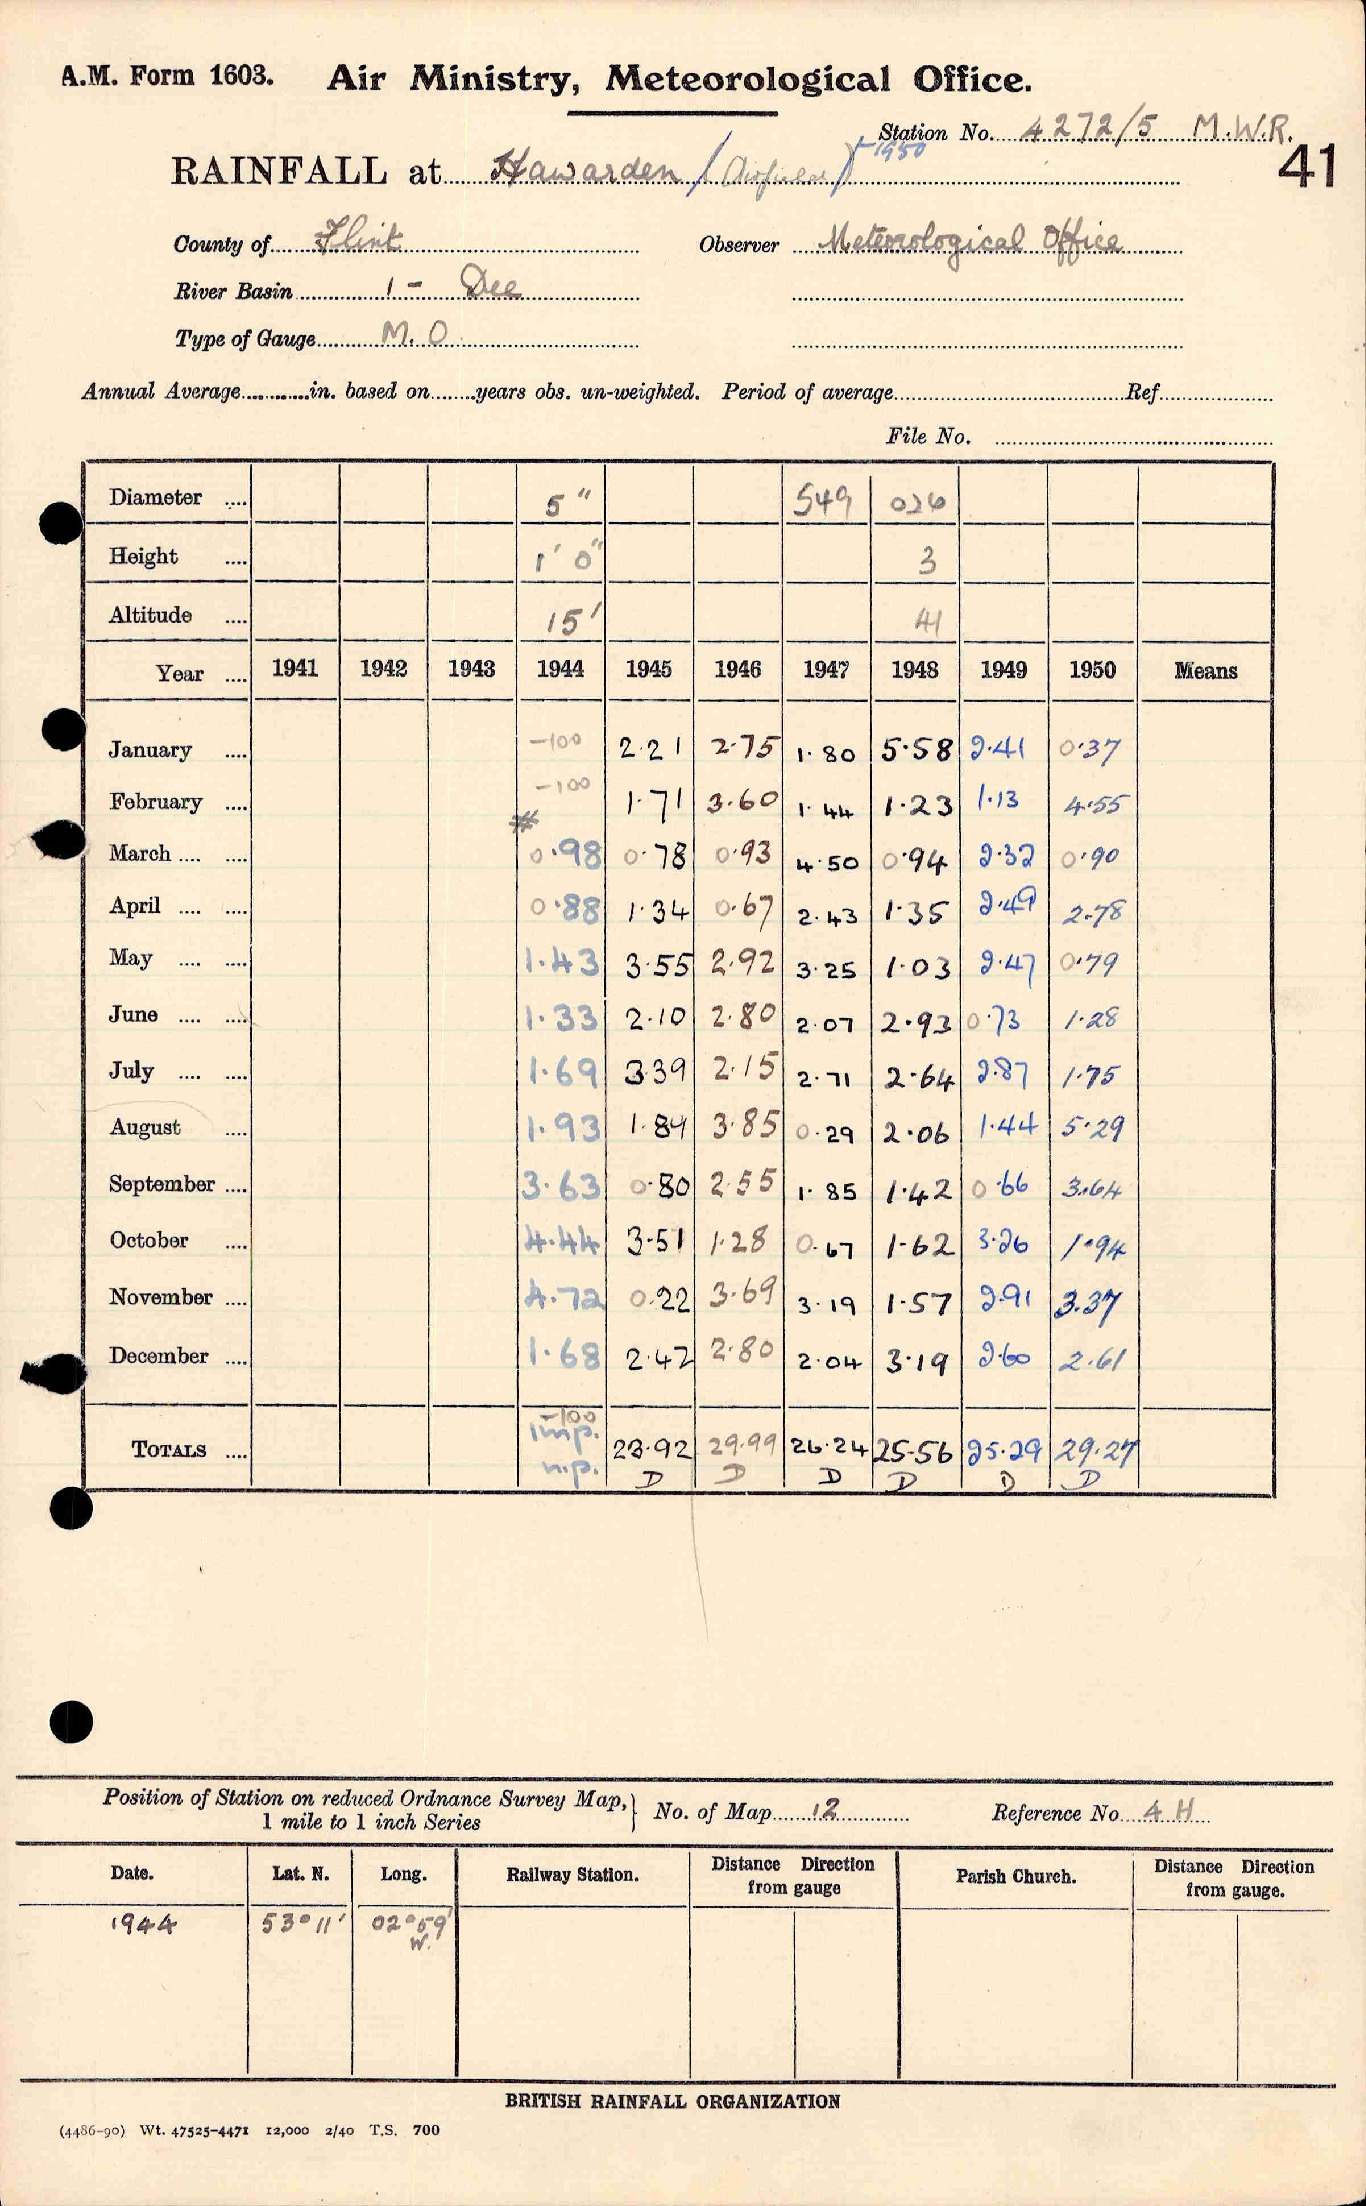 A.M. Form 1603. Air Ministry, Meteorological Office.
Station No. 4272/5 M.W.R.
41
RAINFALL at Hawarden (Airfield) 1950
County of Flint Observer Meteorological Office
River Basin 1 - Dee
Type of Gauge M.O
Annual Average............in. based on........years obs. un-weighted. Period of average........Ref........
File No. ........
Diameter .... 5" 549 026
Height .... 1' 0" 3
Altitude .... 15' 41
Year .... 1941 1942 1943 1944 1945 1946 1947 1948 1949 1950 Means
January .... -100 2.21 2.75 1.80 5.58 2.41 0.37
February .... -100 1.71 3.60 1.44 1.23 1.13 4.55
#
March .... .... 0.98 0.78 0.93 4.50 0.94 2.32 0.90
April .... .... 0.88 1.34 0.67 2.43 1.35 2.49 2.78
May .... .... 1.43 3.55 2.92 3.25 1.03 2.47 0.79
June .... .... 1.33 2.10 2.80 2.07 2.93 0.73 1.28
July .... .... 1.69 3.39 2.15 2.71 2.64 2.87 1.75
August .... 1.93 1.89 3.85 0.29 2.06 1.44 5.29
September .... 3.63 0.80 2.55 1.85 1.42 0.66 3.64
October .... 4.44 3.51 1.28 0.67 1.62 3.26 1.94
November .... 4.72 0.22 3.69 3.19 1.57 2.91 3.37
December .... 1.68 2.42 2.80 2.04 3.19 2.60 2.61
-100
TOTALS .... imp. 23.92 29.99 26.24 25.56 25.29 29.27
n.p. D D D D D D
Position of Station on reduced Ordnance Survey Map, } No. of Map 12 Reference No. 4 H
1 mile to 1 inch Series
Date. Lat. N. Long. Railway Station. Distance Direction from gauge Parish Church. Distance Direction from gauge.
1944 53° 11' 02° 59' W.
BRITISH RAINFALL ORGANIZATION
(4486-90) Wt. 47525-4471 12,000 2/40 T.S. 700